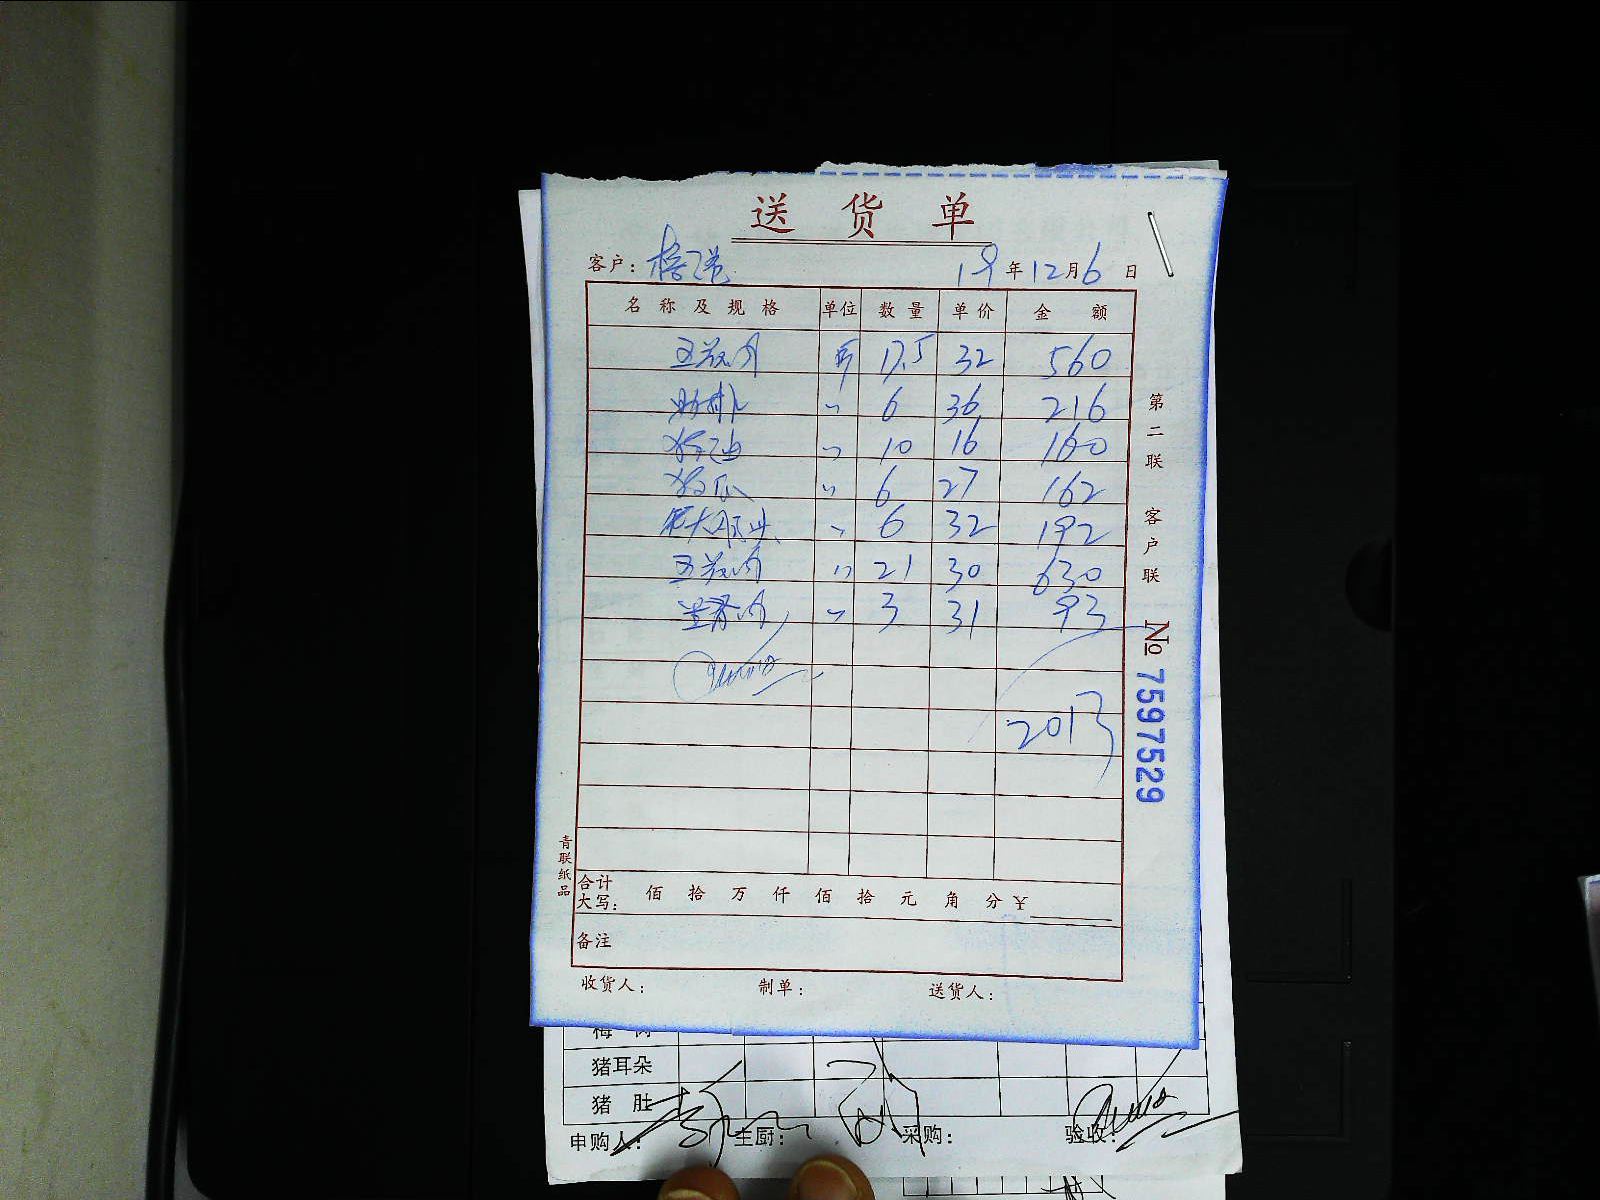 送 货 单
客户: 19年12月6日
名称及规格 单位 数量 单价 金额
五花肉 斤 17.5 32 560
助排 〃 6 36 216
猪油 〃 10 16 160
猪爪 〃 6 27 162
〃 6 32 192
五花肉 〃 21 30 630
肉 〃 3 31 93
2013
合计大写: 佰 拾 万 仟 佰 拾 元 角 分 ¥
备注
收货人: 制单: 送货人:
第二联 客户联
№ 7597529
青联纸品
梅 肉
猪耳朵
猪 肚
申购人: 主厨: 采购: 验收: